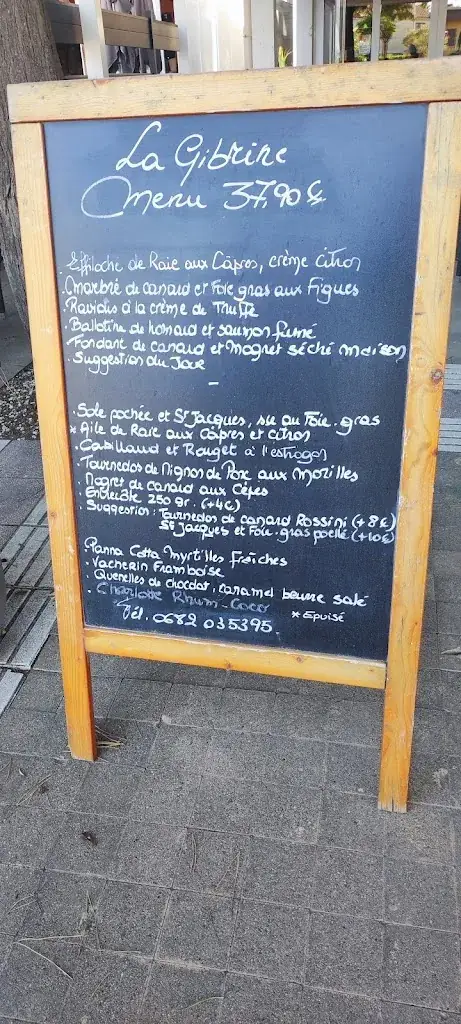 La Gibrine
Menu 37,90 €
. Effiloché de Raie aux Câpres, crème citron
. Marbré de canard et Foie gras aux Figues
. Raviolis à la crème de Truffe
. Ballotine de homard et saumon fumé
. Fondant de canard et magret séché maison
. Suggestion du Jour
-
. Sole pochée et St Jacques, jus au Foie-gras
* Aile de Raie aux câpres et citron
. Cabillaud et Rouget à l'estragon
. Tournedos de Mignon de Porc aux morilles
. Magret de canard aux Cèpes
. Entrecôte 250 gr. (+4€)
. Suggestion : Tournedos de canard Rossini (+8€)
St Jacques et Foie-gras poêlé (+10€)
. Panna Cotta Myrtilles fraîches
. Vacherin Framboise
. Quenelles de chocolat, caramel beurre salé
. Charlotte Rhum-Coco
* Épuisé
Tél. 0682 035395